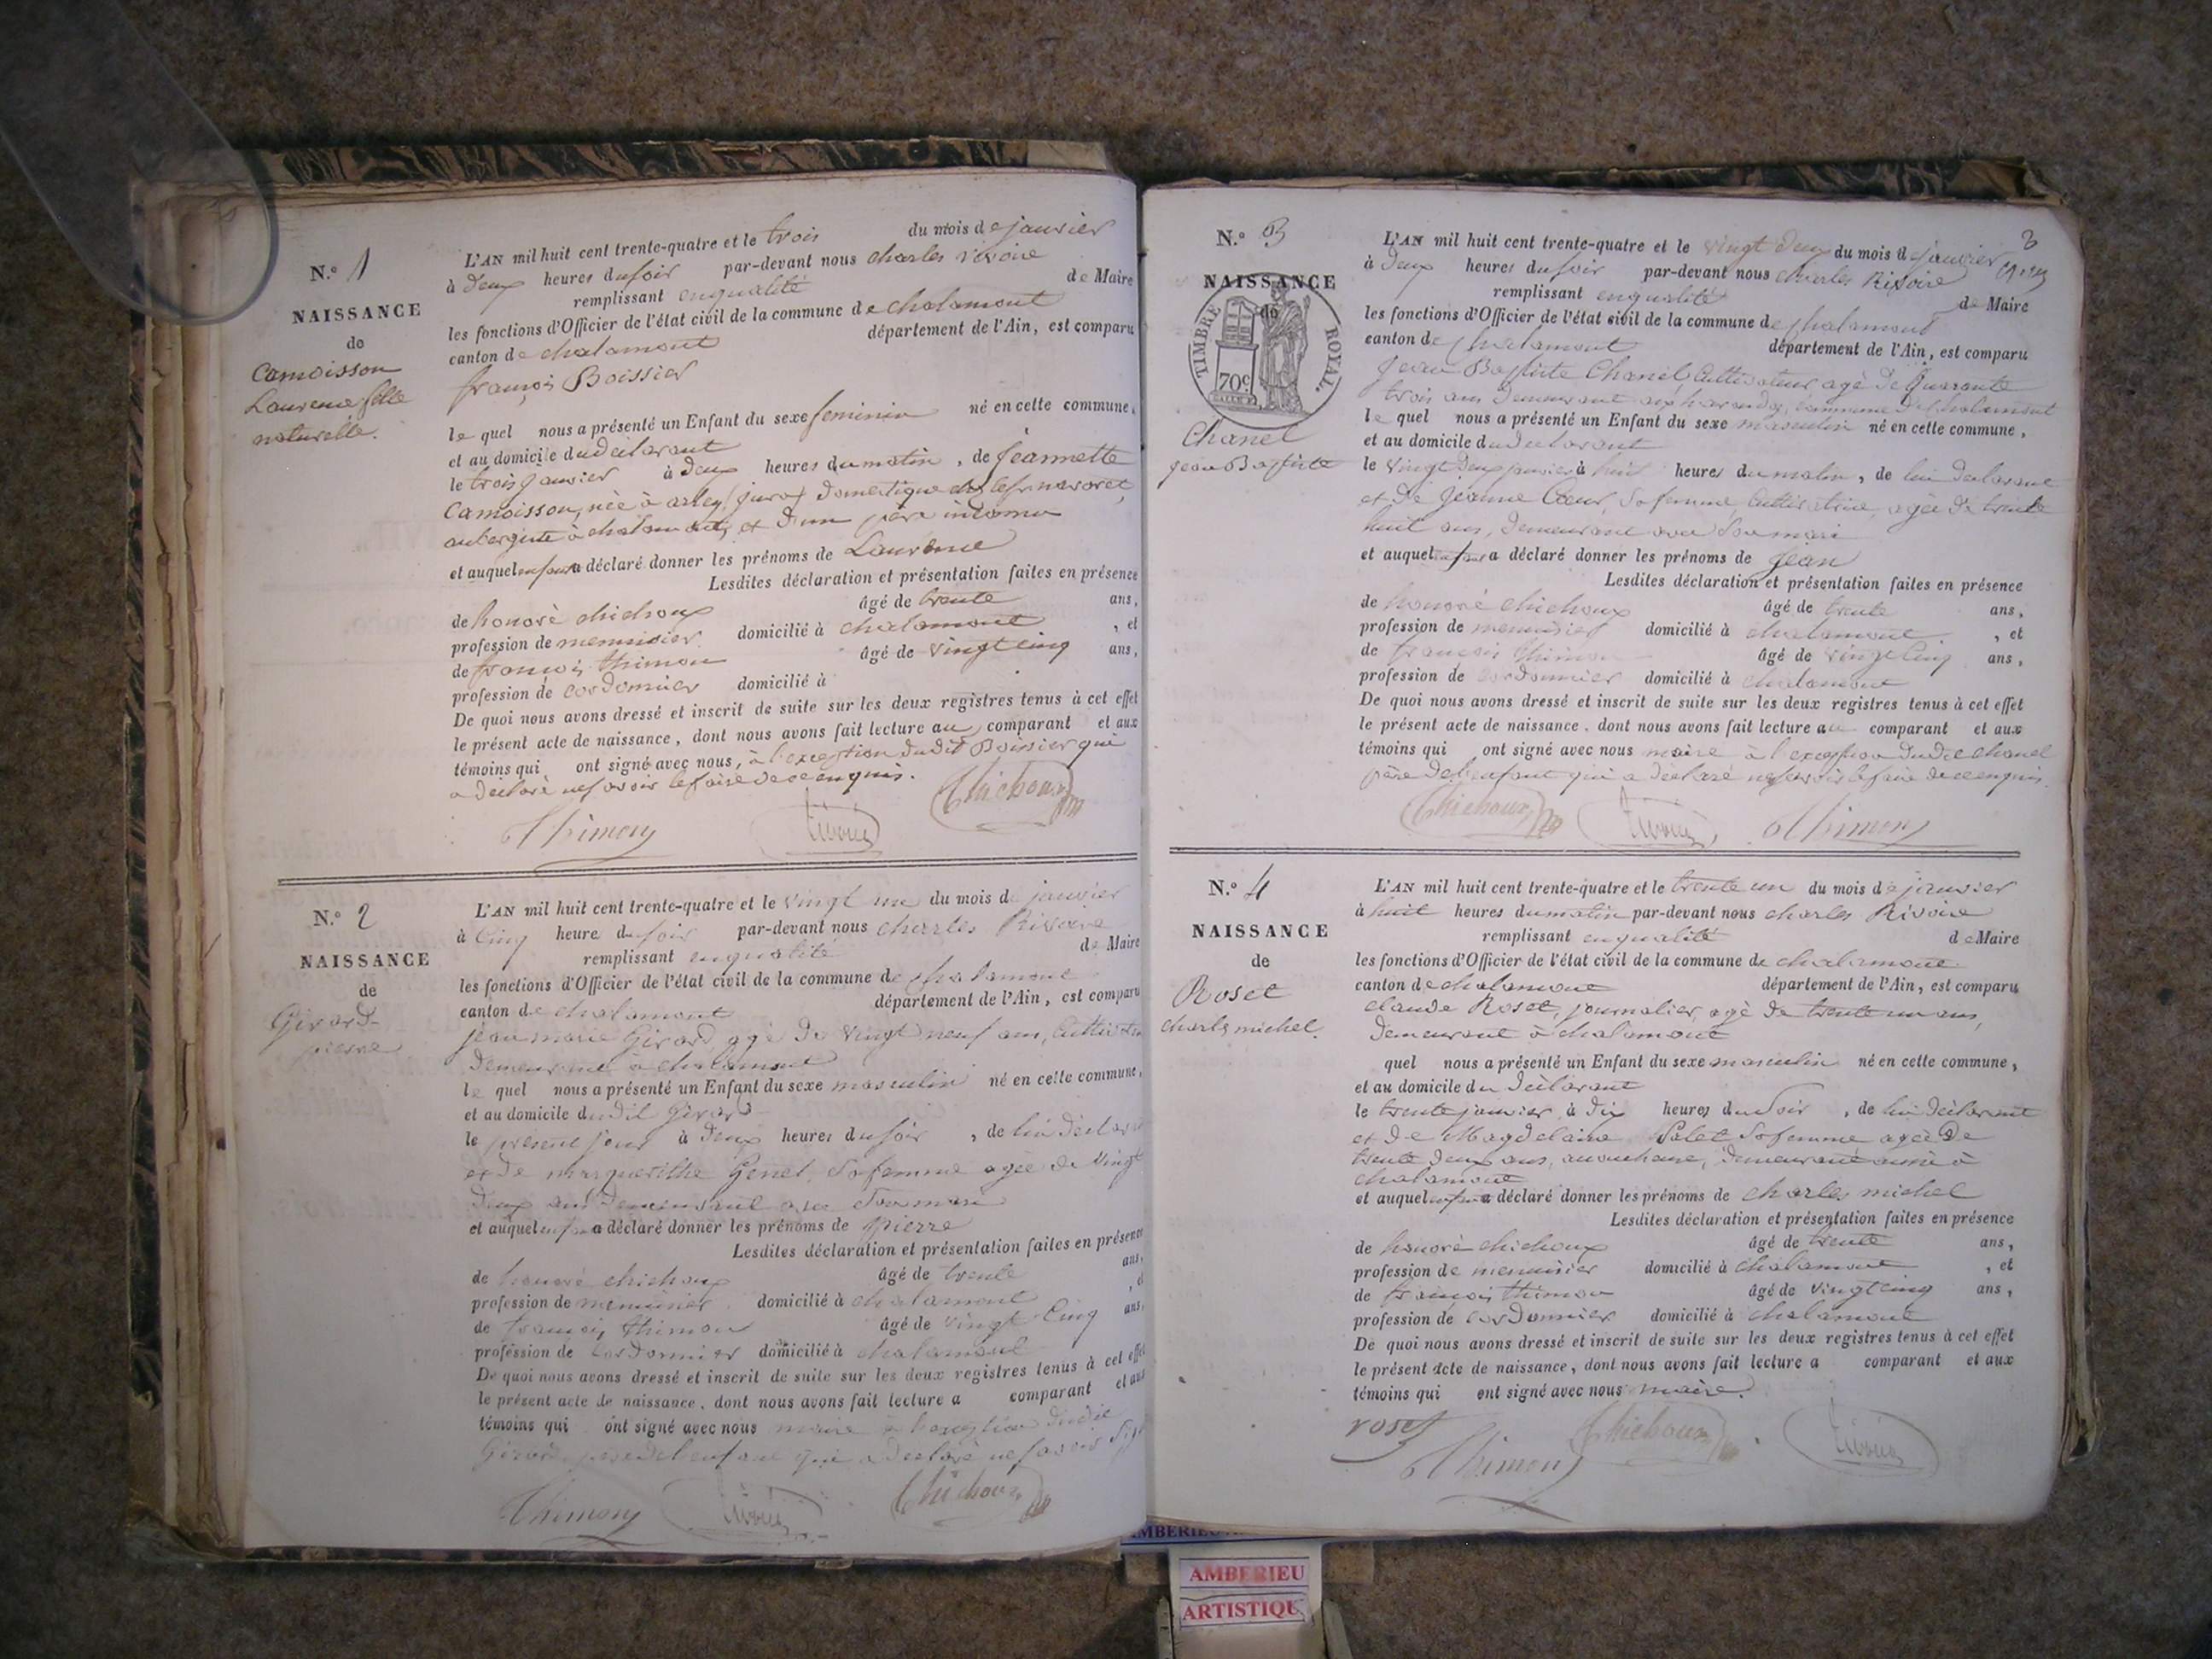 N.o 1
NAISSANCE
de
Camoisson
Laurence fille
naturelle.
L'AN mil huit cent trente-quatre et le trois du mois de janvier
à deux heures du soir par-devant nous charles rivoire
remplissant en qualité de Maire
les fonctions d'Officier de l'état civil de la commune de chalamont
canton de chalamont département de l'Ain, est comparu
françois Boissier
le quel nous a présenté un Enfant du sexe feminin né en cette commune,
et au domicile du déclarant
le trois janvier à deux heures du matin, de jeannette
Camoisson, née à (jura) domestique chez le sr
aubergiste à chalamont, et d'un père inconnu
et auquel enfant a déclaré donner les prénoms de Laurence
Lesdites déclaration et présentation faites en présence
de honoré chichoux âgé de trente ans,
profession de menuisier domicilié à chalamont, et
de françois thimon âgé de vingt cinq ans,
profession de cordonnier domicilié à
De quoi nous avons dressé et inscrit de suite sur les deux registres tenus à cet effet
le présent acte de naissance, dont nous avons fait lecture au comparant et aux
témoins qui ont signé avec nous, à l'exception dudit Boissier qui
a déclaré ne savoir le faire de ce enquis.
Thimon rivoire Chichoux
N.o 2
NAISSANCE
de
Girard
pierre
L'AN mil huit cent trente-quatre et le vingt un du mois de janvier
à cinq heure du soir par-devant nous charles Rivoire
remplissant en qualité de Maire
les fonctions d'Officier de l'état civil de la commune de chalamont
canton de chalamont département de l'Ain, est comparu
jean marie Girard, agé de vingt neuf ans,
demeurant à chalamont
le quel nous a présenté un Enfant du sexe masculin né en cette commune,
et au domicile dudit Girard
le présent jour à deux heures du soir, de lui
et de marguerithe Genet sa femme agée de vingt
deux ans demeurant avec son mari
et auquel enfant a déclaré donner les prénoms de pierre
Lesdites déclaration et présentation faites en présence
de honoré chichoux âgé de trente ans,
profession de menuisier domicilié à chalamont, et
de françois thimon âgé de vingt cinq ans,
profession de cordonnier domicilié à chalamont
De quoi nous avons dressé et inscrit de suite sur les deux registres tenus à cet effet
le présent acte de naissance, dont nous avons fait lecture a comparant et aux
témoins qui ont signé avec nous maire à l'exception dudit
Girard père de l'enfant qui a déclaré ne savoir
Thimon rivoire Chichoux
3
N.o 3
NAISSANCE
de
TIMBRE ROYAL.
70c
Chanel
jean Baptiste
L'AN mil huit cent trente-quatre et le vingt deux du mois de janvier
à deux heures du soir par-devant nous charles Rivoire
remplissant en qualité de Maire
les fonctions d'Officier de l'état civil de la commune de chalamont
canton de chalamont département de l'Ain, est comparu
jean Baptiste Chanel cultivateur agé de quarante
trois ans demeurant commune de chalamont
le quel nous a présenté un Enfant du sexe masculin né en cette commune,
et au domicile du déclarant
le vingt deux janvier à huit heures du matin, de lui déclarant
et de jeanne Coeur, sa femme, cultivatrice, agée de trente
huit ans, demeurant avec son mari
et auquel enfant a déclaré donner les prénoms de jean
Lesdites déclaration et présentation faites en présence
de honoré chichoux âgé de trente ans,
profession de menuisier domicilié à chalamont, et
de françois thimon âgé de vingt cinq ans,
profession de cordonnier domicilié à chalamont
De quoi nous avons dressé et inscrit de suite sur les deux registres tenus à cet effet
le présent acte de naissance, dont nous avons fait lecture au comparant et aux
témoins qui ont signé avec nous maire à l'exception dudit chanel
père de l'enfant qui a déclaré ne savoir le faire de ce enquis.
Chichoux rivoire Thimon
N.o 4
NAISSANCE
de
Roset
charles michel.
L'AN mil huit cent trente-quatre et le trente un du mois de janvier
à huit heures du matin par-devant nous charles Rivoire
remplissant en qualité de Maire
les fonctions d'Officier de l'état civil de la commune de chalamont
canton de chalamont département de l'Ain, est comparu
claude Roset, journalier, agé de trente un ans,
demeurant à chalamont
quel nous a présenté un Enfant du sexe masculin né en cette commune,
et au domicile du déclarant
le trente janvier à dix heures du soir, de lui déclarant
et de Magdelaine Palet sa femme agée de
trente deux ans, demeurant aussi à
chalamont
et auquel enfant a déclaré donner les prénoms de charles michel
Lesdites déclaration et présentation faites en présence
de honoré chichoux âgé de trente ans,
profession de menuisier domicilié à chalamont, et
de françois thimon âgé de vingt cinq ans,
profession de cordonnier domicilié à chalamont
De quoi nous avons dressé et inscrit de suite sur les deux registres tenus à cet effet
le présent acte de naissance, dont nous avons fait lecture a comparant et aux
témoins qui ont signé avec nous maire.
roset Thimon Chichoux rivoire
AMBERIEU
ARTISTIQUE